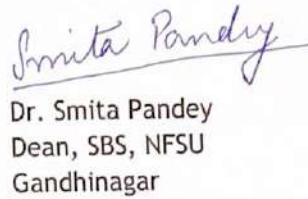 Smita Pandey
Dr. Smita Pandey
Dean, SBS, NFSU
Gandhinagar